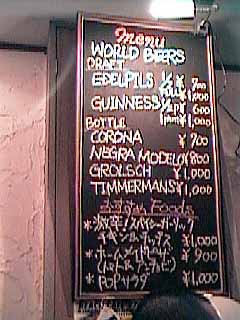 Menu
WORLD BEERS
DRAFT
EDELPILS 1/2 ¥ 700
¥1,000
GUINNESS 1/2p ¥ 600
1pint ¥1,000
BOTTLE
CORONA ¥ 700
NEGRA MODELO ¥800
GROLSCH ¥1,000
TIMMERMANS ¥1,000
おすすめ Foods
*激辛!スパイシーガーリック
チキン&チップス ¥1,000
¥ 900
*POPサラダ ¥1,000